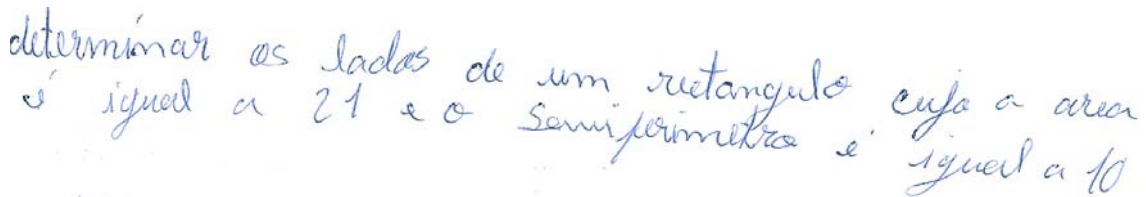 determinar os lados de um retangulo cuja a area
é igual a 21 e o semiperimetro é igual a 10